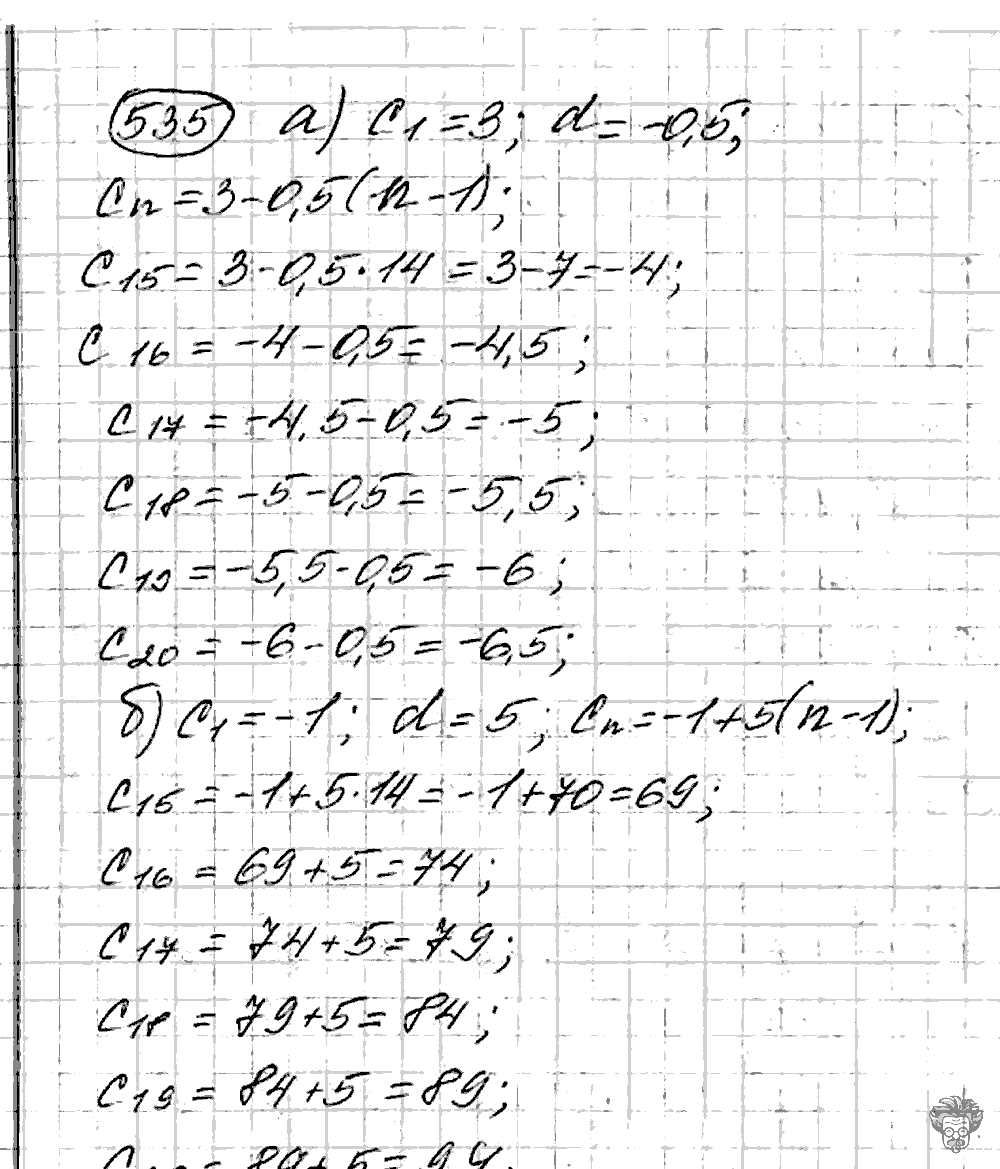 535 а) c₁ = 3; d = -0,5;
cₙ = 3 - 0,5(n - 1);
c₁₅ = 3 - 0,5 · 14 = 3 - 7 = -4;
c₁₆ = -4 - 0,5 = -4,5;
c₁₇ = -4,5 - 0,5 = -5;
c₁₈ = -5 - 0,5 = -5,5;
c₁₉ = -5,5 - 0,5 = -6;
c₂₀ = -6 - 0,5 = -6,5;
б) c₁ = -1; d = 5; cₙ = -1 + 5(n - 1);
c₁₅ = -1 + 5 · 14 = -1 + 70 = 69;
c₁₆ = 69 + 5 = 74;
c₁₇ = 74 + 5 = 79;
c₁₈ = 79 + 5 = 84;
c₁₉ = 84 + 5 = 89;
= 89 + 5 = 94;